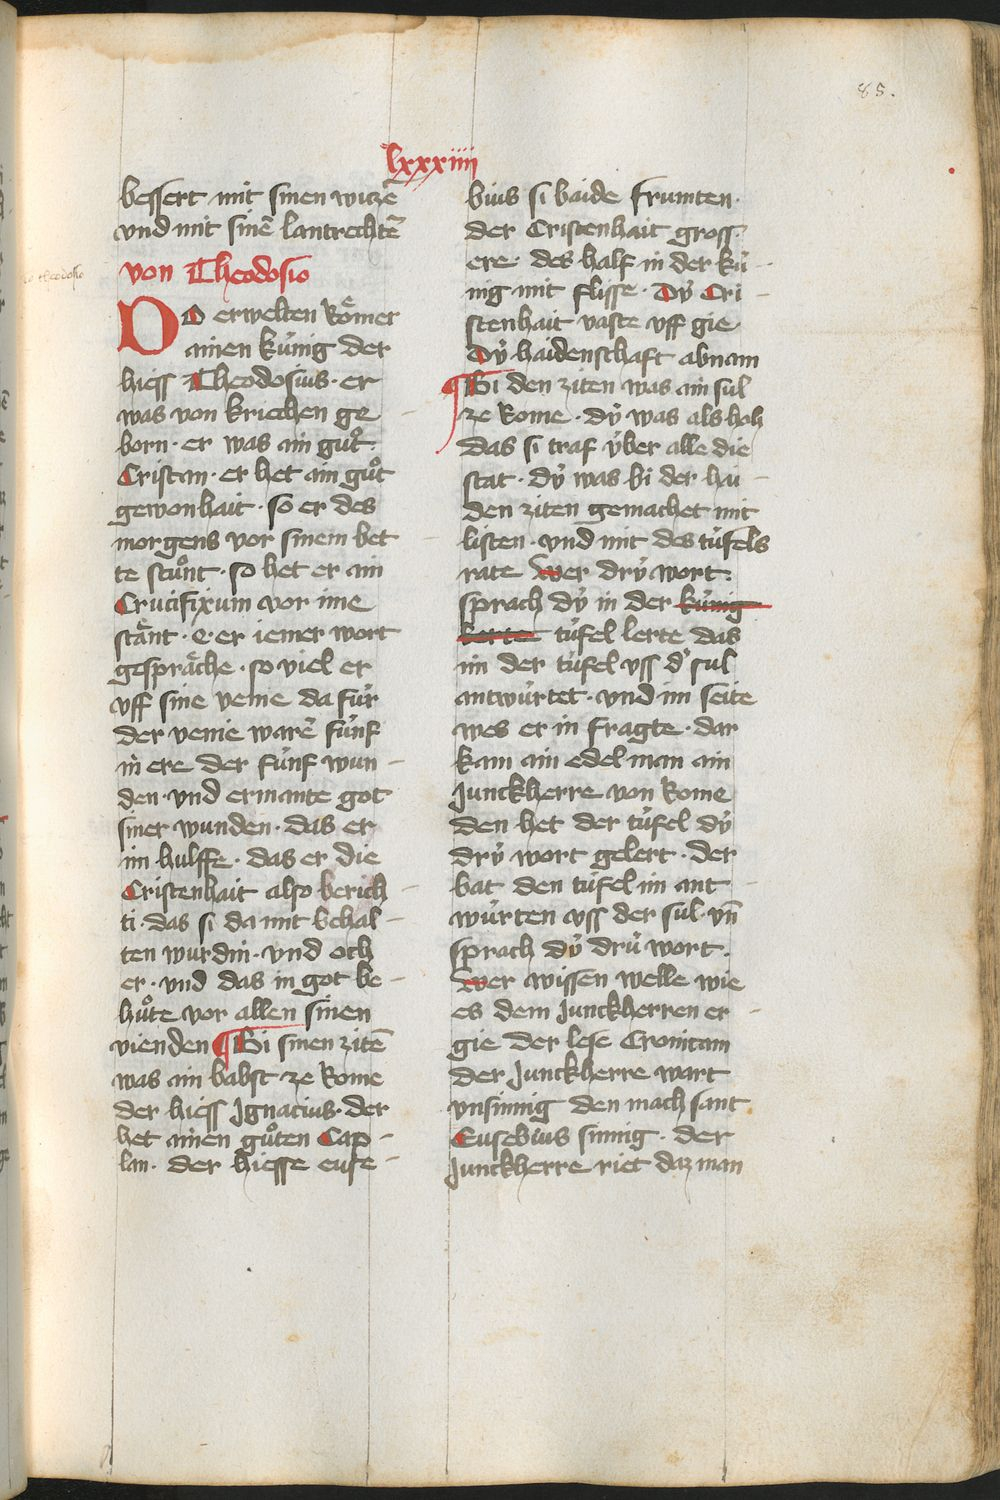 85.
lxxxiiii
bessert mit sinen wiczē
vnd mit sinē lantrechtē
von Theodosio
DO erwelten Roͤmer
ainen kúnig der
hiess Theodosius · er
was von kriechen ge
born · er was ain guͦt
Cristan · er het ain guͦt
gewonhait · so er des
morgens vor sinem bet
te stuͦnt · so het er ain
Crucifixum vor ime
staͤnt · e · er iemer wort
gespraͤche · so viel er
vff sine venie da fúr
der venie warē fúnf
in ere der fúnf wun -
den · vnd ermante got
siner wunden · das er
im hulffe · das er die
Cristenhait also berich -
ti · das si da mit behal -
ten wurdin · vnd och
er · vnd das in got be -
huͦte vor allen sinen
vienden ¶ Bi sinen zitē
was ain babst ze Rome
der hiess Ignacius · der
het ainen guͦten Cap -
lan · der hiesse euse -
bius si baide frumten ·
der Cristenhait gross
ere · des half in der kú
nig mit flisse · Dv́ Cri -
stenhait vaste vff gie
Dv́ haidenschaft abnam
¶ Bi den ziten was ain sul
- ze Rome · dv́ was als hoh
das si traf v́ber alle die
stat · dv́ was bi der hai -
den ziten gemachet mit
- listen · vnd mit des túfels
rate Wer drv́ wort ·
sprach dv́ in der kúnig
lerte túfel lerte das
im der túfel vss d' sul
antwúrtet · vnd im seite
wes er in fragte · dar
kam ain edel man ain
Junckherre von Rome
den het der túfel dv́
drv́ wort gelert · der
bat den túfel im ant -
wúrten vss der sul · vn̄
sprach dv́ drú wort ·
Wer wissen welle wie
es dem Junckherren er -
gie der lese Cronicam
der Junckherre wart
vnsinnig den mach sant
Eusebius sinnig · der
Junckherre riet daz man